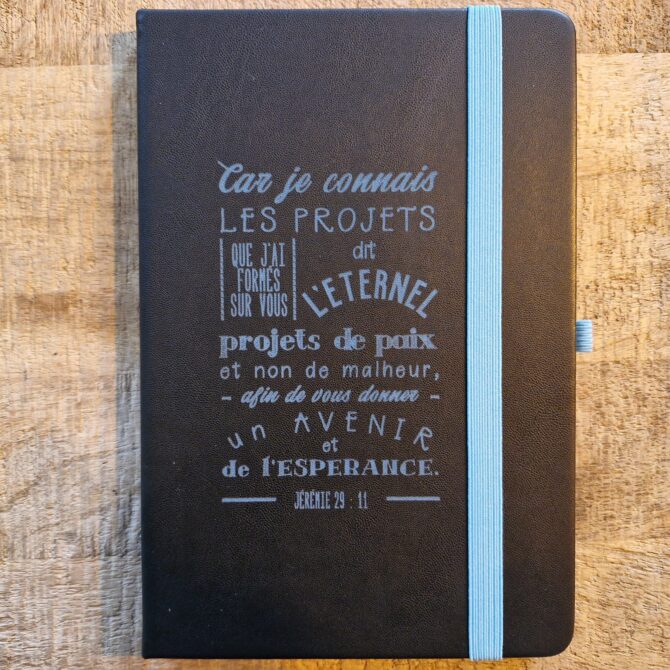 Car je connais
LES PROJETS
QUE J'AI
FORMÉS
SUR VOUS
dit
L'ETERNEL
projets de paix
et non de malheur,
- afin de vous donner -
un AVENIR
et
de l'ESPERANCE.
JÉRÉMIE 29 . 11